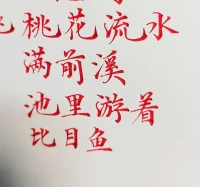 桃花流水
满前溪
池里游着
比目鱼